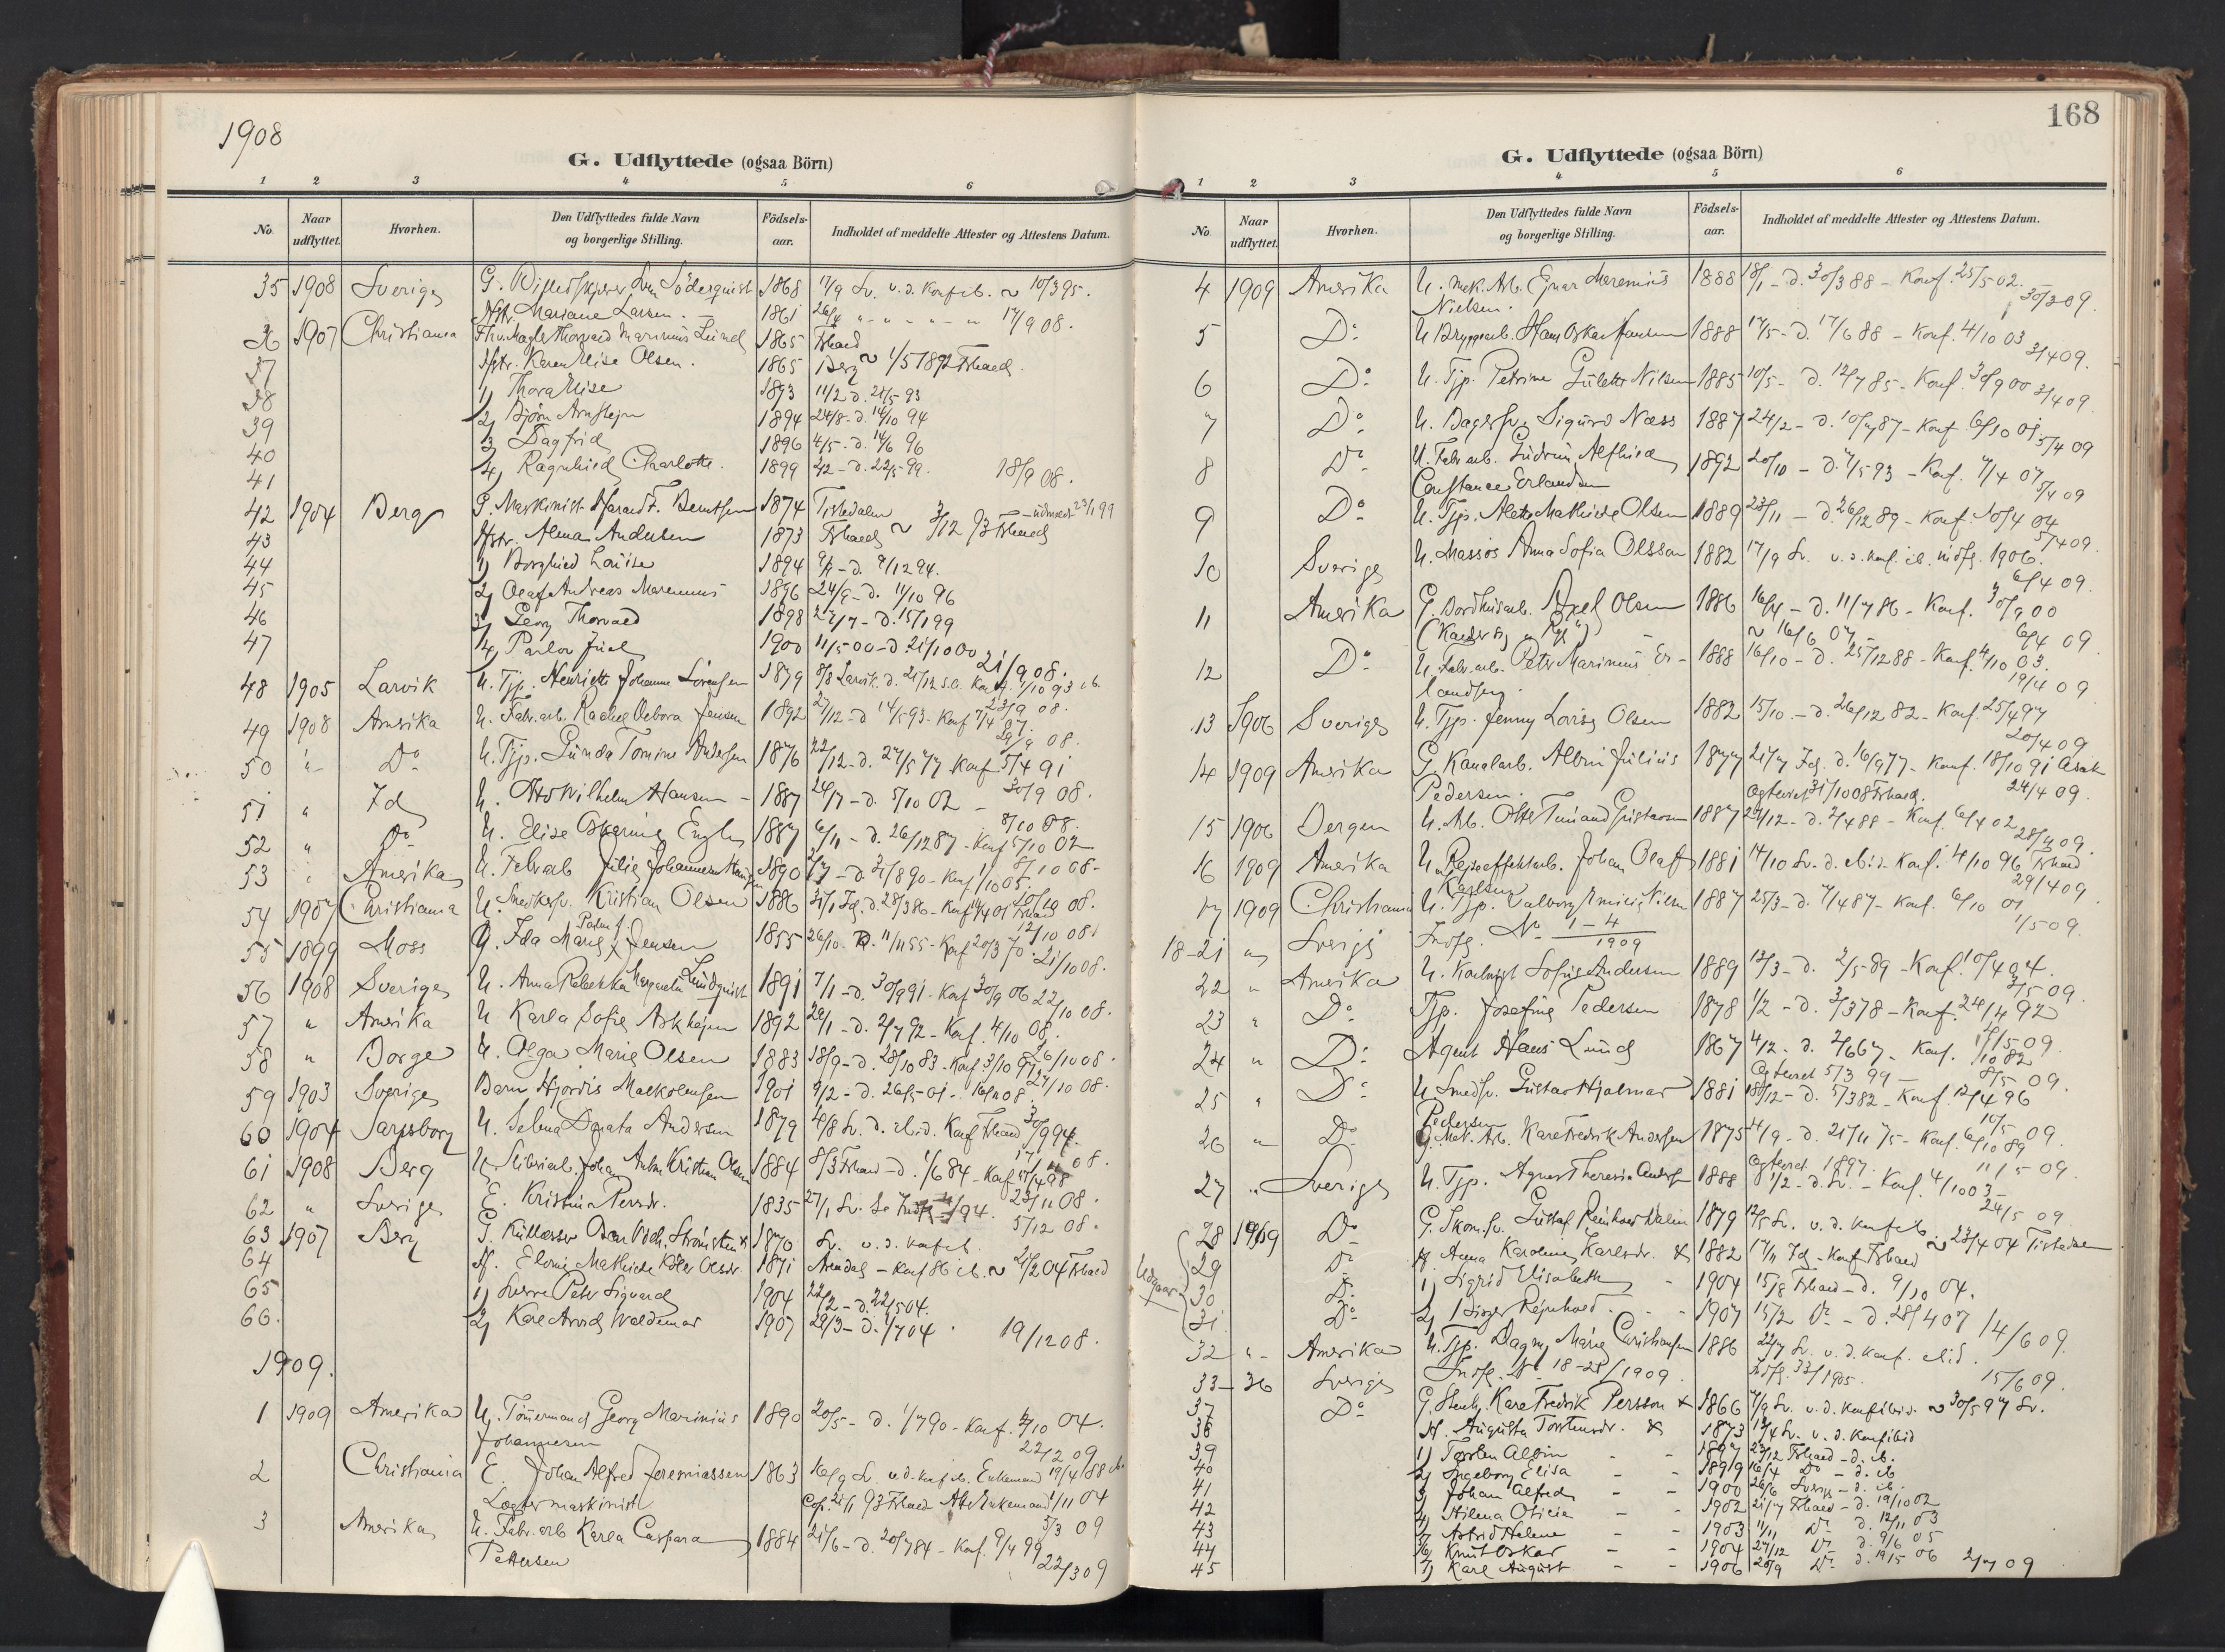 1908
G. Udflyttede (ogsaa Börn)
1 2 3 4 5 6
No. Naar udflyttet. Hvorhen. Den Udflyttedes fulde Navn og borgerlige Stilling. Födsels-aar. Indholdet af meddelte Attester og Attestens Datum.
35 1908 Sverige G. Söderquist 1868 17/9 Sv. u. d. Konf cb. ~ 10/3 95.
Hstr. Mariane Larsen. 1861 17/9 08.
36 1907 Christiania Thorvald Marinius Lund 1865 Frhald
37 Hstr. Karen Elise Olsen. 1865 Berg ~ 1/5 1892 Frhald.
38 1) Thora Elise 1893 11/2 d. 21/5 93
39 2) Björn Arnstejn 1894 24/8 - d. 14/10 94
40 3) Dagfrid 1896 4/5 - d. 14/6 96
41 4) Ragnhild Charlotte. 1899 d. 22/5 99. 18/9 08.
42 1904 Berg G. Maskinist Harald F. Berntsen 1874 Tistedalen - udmeldt 23/1 99
43 Hstr. Alma Andersen 1873 Frhald ~ 3/12 93 Frhald
44 1) Borghild Louise 1894 d. 9/12 94.
45 2) Olaf Andreas Marenius 1896 24/9 - d. 11/10 96
46 3) Georg Thorvald 1898 27/7 - d. 15/1 99
47 4) 1900 11/5 00 - d. 21/10 00 21/9 08.
48 1905 Larvik U. Tjp. Henriette Johanne Sörensen 1879 8/8 Larvik. d. 21/12 s.a. Konf. 1/10 93 cb. 23/9 08.
49 1908 Amerika U. Fabr.arb. Rachel Debora Jensen 1892 27/12 - d 14/5 93 - Konf 7/4 07. 29/9 08.
50 " Do U. Tjp. Gunda Tomine Andersen 1876 22/12 - d. 27/5 77 Konf 5/4 91 30/9 08.
51 " Id U. Otto Wilhelm Hansen - 1887 24/7 - d. 5/10 02 - 8/10 08.
52 " Do U. Elise Engh 1887 6/11 - d. 26/12 87 - Konf 5/10 02 8/10 08.
53 " Amerika U. Fabr.arb Julie Johannesen 1890 d. 31/8 90 - Konf 1/10 05. 10/10 08.
54 1907 Christiania U. Snedkersv. Kristian Olsen 1886 31/1 Id. d. 28/3 86 - Konf 14/4 01 Frhald 12/10 08
55 1899 Moss G. Ida Marie Jensen 1855 26/10 - d. 11/11 55 - Konf 20/3 70. 21/10 08.
56 1908 Sverige U. Anna Rebekka Margareta Lundquist 1891 7/1 - d. 30/9 91 - Konf 30/9 06 22/10 08.
57 " Amerika U. Karla Sofie Askhejm 1892 28/1 - d. 2/7 92 - Konf. 4/10 08. 26/10 08.
58 " Borge U. Olga Marie Olsen 1883 18/9 - d. 28/10 83 - Konf 3/10 97 27/10 08.
59 1903 Sverige Barn Hjördis Malkolmsen 1901 9/2 - d. 26/5 - 01 - 16/11 08
60 1904 Sarpsborg U. Selma Donata Andersen 1879 4/8 Sv. d. cb. d. Konf Frhald 30/9 94.
61 1908 Berg U. Johan Anton Kristian Olsen 1884 8/3 Frhald - d. 1/6 84 - Konf 17/4 98
62 " Sverige E. Kristina Persdr. 1835 27/1 Sv. 23/11 08.
63 1907 Berg G. Oscar Strömsten 1870 Sv. u. d. Konf cb. 5/12 08.
64 H. Mathilde Olsdr. 1871 Arendal - Konf 86 cb. ~ 21/2 04 Frhald
65 1) Sverre Peter Sigvard 1904 22/2 - d. 22/5 04.
66. 2) Karl Arvid Waldemar 1907 29/3 - d. 1/7 04. 19/12 08.
1909.
1 1909 Amerika U. Tömermand Georg Marinius Johannesen 1890 20/5 - d. 1/7 90 - Konf. 2/10 04. 22/2 09
2 Christiania E. Johan Alfred Jeremiassen Logtermaskinist 1863 16/9 Sv. u. d. Konf cb. Enkemand 19/4 88 cb.
Cop. 21/1 93 Frhald Enkemand 1/11 04 5/3 09
3 Amerika U. Fabr.arb Karla Caspara Pettersen 1884 21/6 - d. 20/7 84 - Konf. 9/4 99 22/3 09
168
G. Udflyttede (ogsaa Börn)
1 2 3 4 5 6
No. Naar udflyttet. Hvorhen. Den Udflyttedes fulde Navn og borgerlige Stilling. Födsels-aar. Indholdet af meddelte Attester og Attestens Datum.
4 1909 Amerika U. mek. Arb. Ejnar Marenius Nielsen. 1888 18/1 - d. 30/3 88 - Konf. 25/5 02. 30/3 09.
5 Do U. Bryggearb. Hans Oskar Hansen 1888 17/5 - d. 17/6 88 - Konf. 4/10 03 3/4 09.
6 Do U. Tjp. Petrine Gulette Nilsen 1885 10/5 - d. 12/7 85 - Konf. 30/9 00 3/4 09
7 Do U. Bagersv. Sigurd Næss 1887 24/2 - d. 10/7 87 - Konf 6/10 01 5/4 09
8 Do U. Fabr.arb. Gudrun Alfhild Constance Erlandsen 1892 20/10 - d. 7/5 93 - Konf. 7/4 07 5/4 09
9 Do U. Tjp. Alette Mathilde Olsen 1889 23/11 - d. 26/12 89 - Konf. 10/4 04 5/4 09.
10 Sverige U. Massös Anna Sofia Olsson 1882 17/9 Sv. u. d. Konf. cb. indfl. 1906. 6/4 09.
11 Amerika G. Axel Olsen 1886 d. 11/7 86 - Konf. 30/9 00 ~ 16/6 07 6/4 09
12 Do U. Fabr.arb. Peter Marinius Er-landsen. 1888 16/10 - d. 25/12 88 - Konf. 4/10 03. 19/4 09
13 1906 Sverige U. Tjp. Jenny Lovise Olsen 1882 15/10 - d. 26/12 82 - Konf. 25/4 97 20/4 09
14 1909 Amerika G. Kanalarb. Albin Julius Pedersen. 1877 21/7 Id. d. 16/9 77 - Konf. 18/10 91 Asak
Egteviet 31/10 08 Frhald. 24/4 09.
15 1906 Bergen U. Arb. Gustavsen 1887 27/12 - d. 2/4 88 - Konf. 6/4 02 28/4 09.
16 1909 Amerika U. Rejseeffektarb. Johan Olaf Karlsen 1881 14/10 Sv. d. cb. d. Konf. 4/10 96 Frhald 29/4 09
17 1909 Christiania U. Tjp. Valborg Emilie Nilsen 1887 25/3 - d. 7/4 87 - Konf. 6/10 01 1/5 09.
18-21 " Sverige Indfl. No 1-4 1909
22 " Amerika U. Sofie Andersen 1889 12/3 - d. 2/5 89 - Konf. 10/4 04. 3/5 09.
23 " Do Tjp. Josefine Pedersen 1878 1/2 - d. 3/3 78 - Konf. 24/4 92 4/5 09.
24 " Do Agent Hans Lund 1867 4/12 - d. 2/6 67 - Konf. 1/10 82
Egteviet 5/3 99 - 8/5 09.
25 " Do U. Smedsv. Gustav Hjalmar Pedersen 1881 18/12 - d. 5/3 82 - Konf. 12/4 96 10/5 09.
26 " Do G. Mek. Arb. Karl Fredrik Andersen 1875 4/9 - d. 21/11 75 - Konf. 6/10 89
Egteviet 1897. 11/5 09.
27 " Sverige U. Tjp. Agnes Theresia Anders 1888 1/2 - d. Sv. - Konf. 4/10 03 - 24/5 09
Udgaar
28 1909 Do G. Skom.sv. Gustaf Reinhold Walin 1879 12/5 Sv. u. d. Konf cb. ~ 23/4 04 Tistedalen
29 Do H. Anna Karoline Karlsdr. 1882 17/11 Id - Konf Frhald
30 Do 1) Sigrid Elisabeth - 1904 15/8 Frhald - d. 9/10 04.
31 Do 2) Rejnhold - - 1907 15/2 Do - d. 28/4 07 14/6 09.
32 " Amerika U. Tjp. Dagny Marie Christiansen 1886 22/7 Sv. u. d. Konf. cbid. Indfl. 33/1905.
33-36 Sverige Indfl. No 18-21/1909. 15/6 09.
37 Do G. Stenh. Karl Fredrik Persson 1866 7/9 Sv. u. d. Konf ibid. ~ 30/5 97 Sv.
38 H. Augusta Torstensdr. 1873 Sv. u. d. Konf ibid
39 1) Torsten Albin - - 1897 23/12 Frhald - d. cb.
40 2) Ingeborg Elisa - - 1899 16/4 Do - d. cb
41 3) Johan Alfred - - 1900 26/6 Sverige - d. cb.
42 4) Hilma Oticia - - 1902 21/7 Frhald - d. 19/10 02
43 5) Astrid Helene - - 1903 11/11 Do d. 12/11 03
44 6) Knut Oskar - - 1904 27/12 Do d. 9/6 05
45 7) Karl August - - 1906 20/9 Do d. 19/5 06 2/7 09